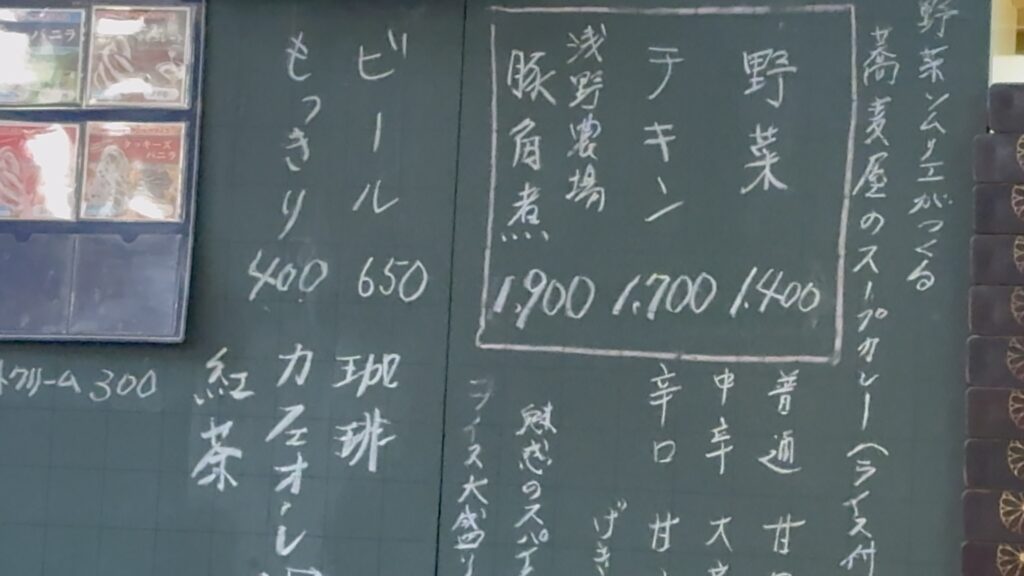 野菜ソムリエがつくる
蕎麦屋のスープカレー(ライス付
野菜 1.400
チキン 1.700
浅野農場
豚角煮 1.900
普通 甘
中辛 大
辛口 甘
げき
魅惑のスパイ
ライス大盛り
ビール 650
もっきり 400
珈琲
カフェオ・レ
紅茶
トクリーム 300
バニラ